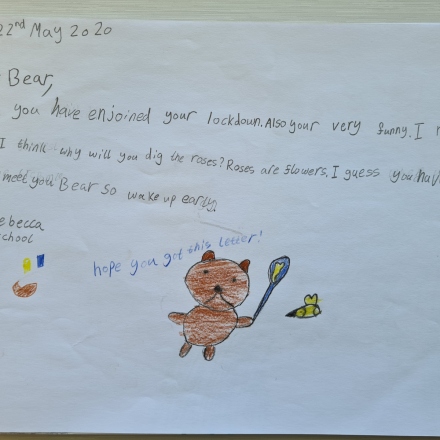 22nd May 2020
Bear,
you have enjoined your lockdown. Also your very funny. I
I think why will you dig the roses? Roses are flowers. I guess you hav
meet you Bear so wake up early.
ebecca
chool
hope you got this letter!